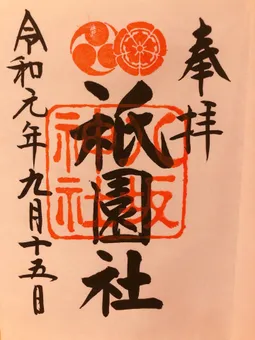 奉拝
祇園社
八坂神社
令和元年九月十五日